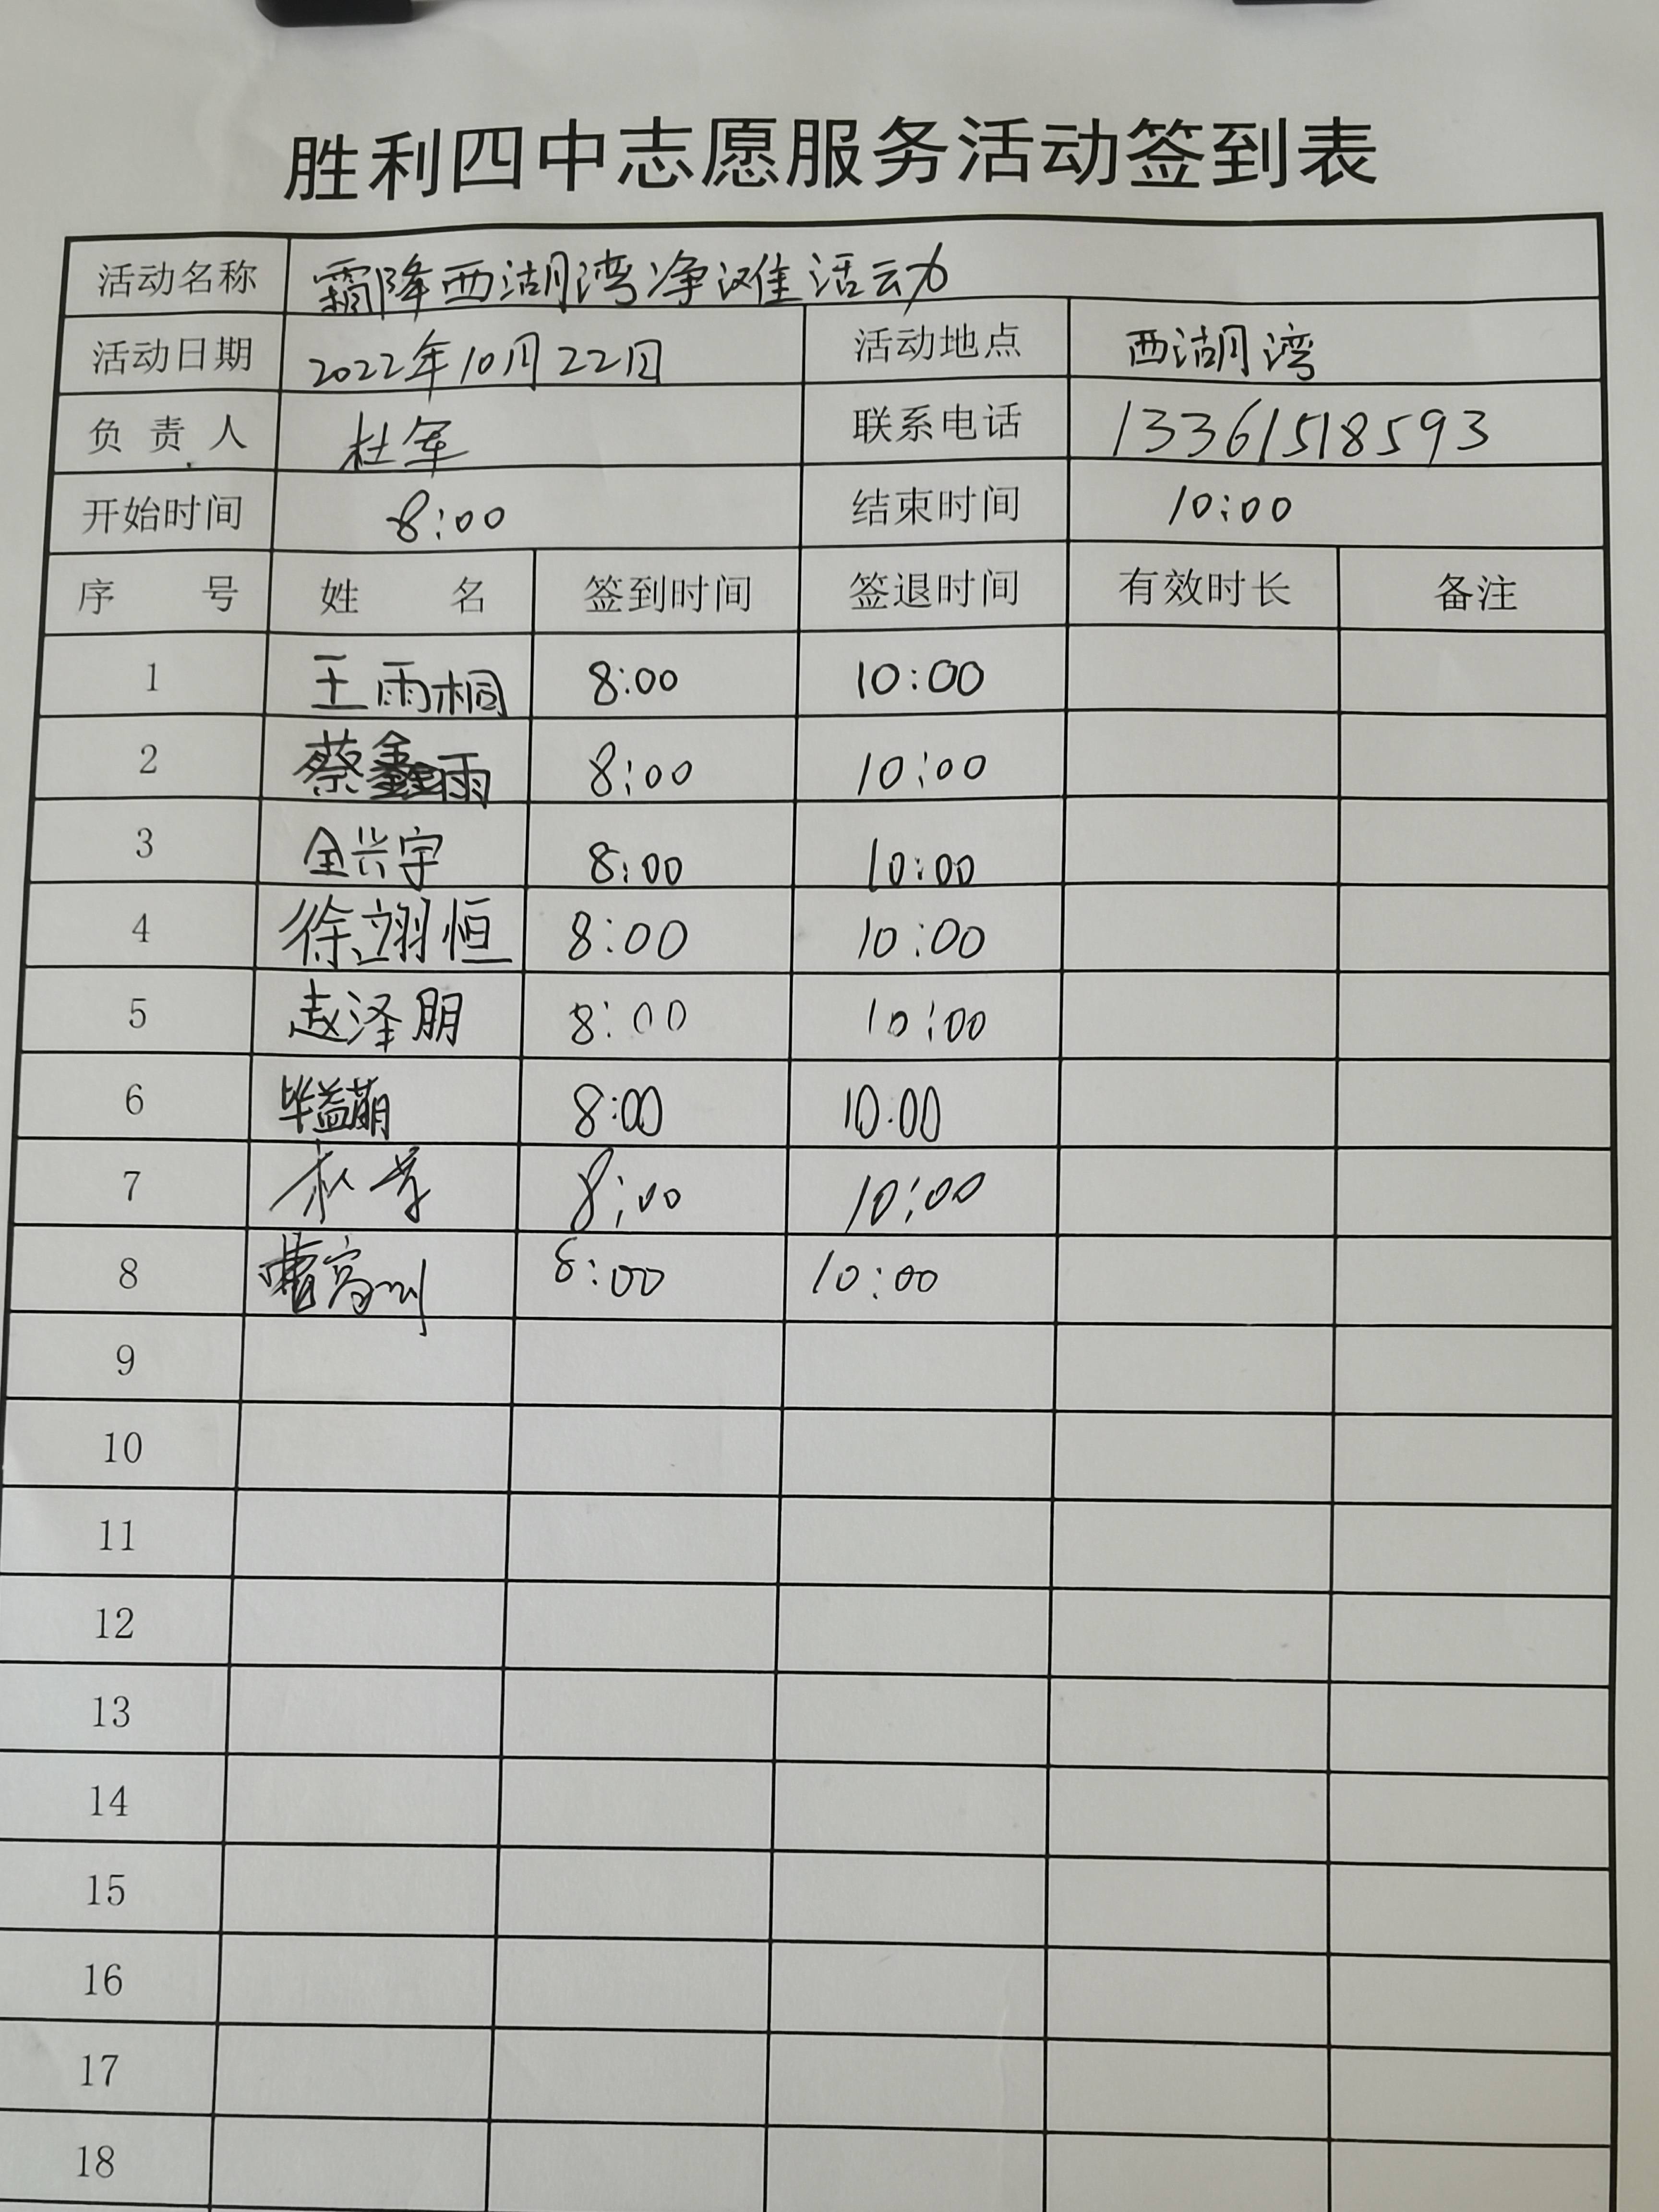 胜利四中志愿服务活动签到表
活动名称 霜降西湖湾净滩活动
活动日期 2022年10月22日 活动地点 西湖湾
负责人 杜军 联系电话 13361518593
开始时间 8:00 结束时间 10:00
序号 姓名 签到时间 签退时间 有效时长 备注
1 王雨桐 8:00 10:00
2 蔡鑫雨 8:00 10:00
3 全兴宇 8:00 10:00
4 徐翊恒 8:00 10:00
5 赵泽朋 8:00 10:00
6 毕益萌 8:00 10.00
7 8:00 10:00
8 8:00 10:00
9
10
11
12
13
14
15
16
17
18